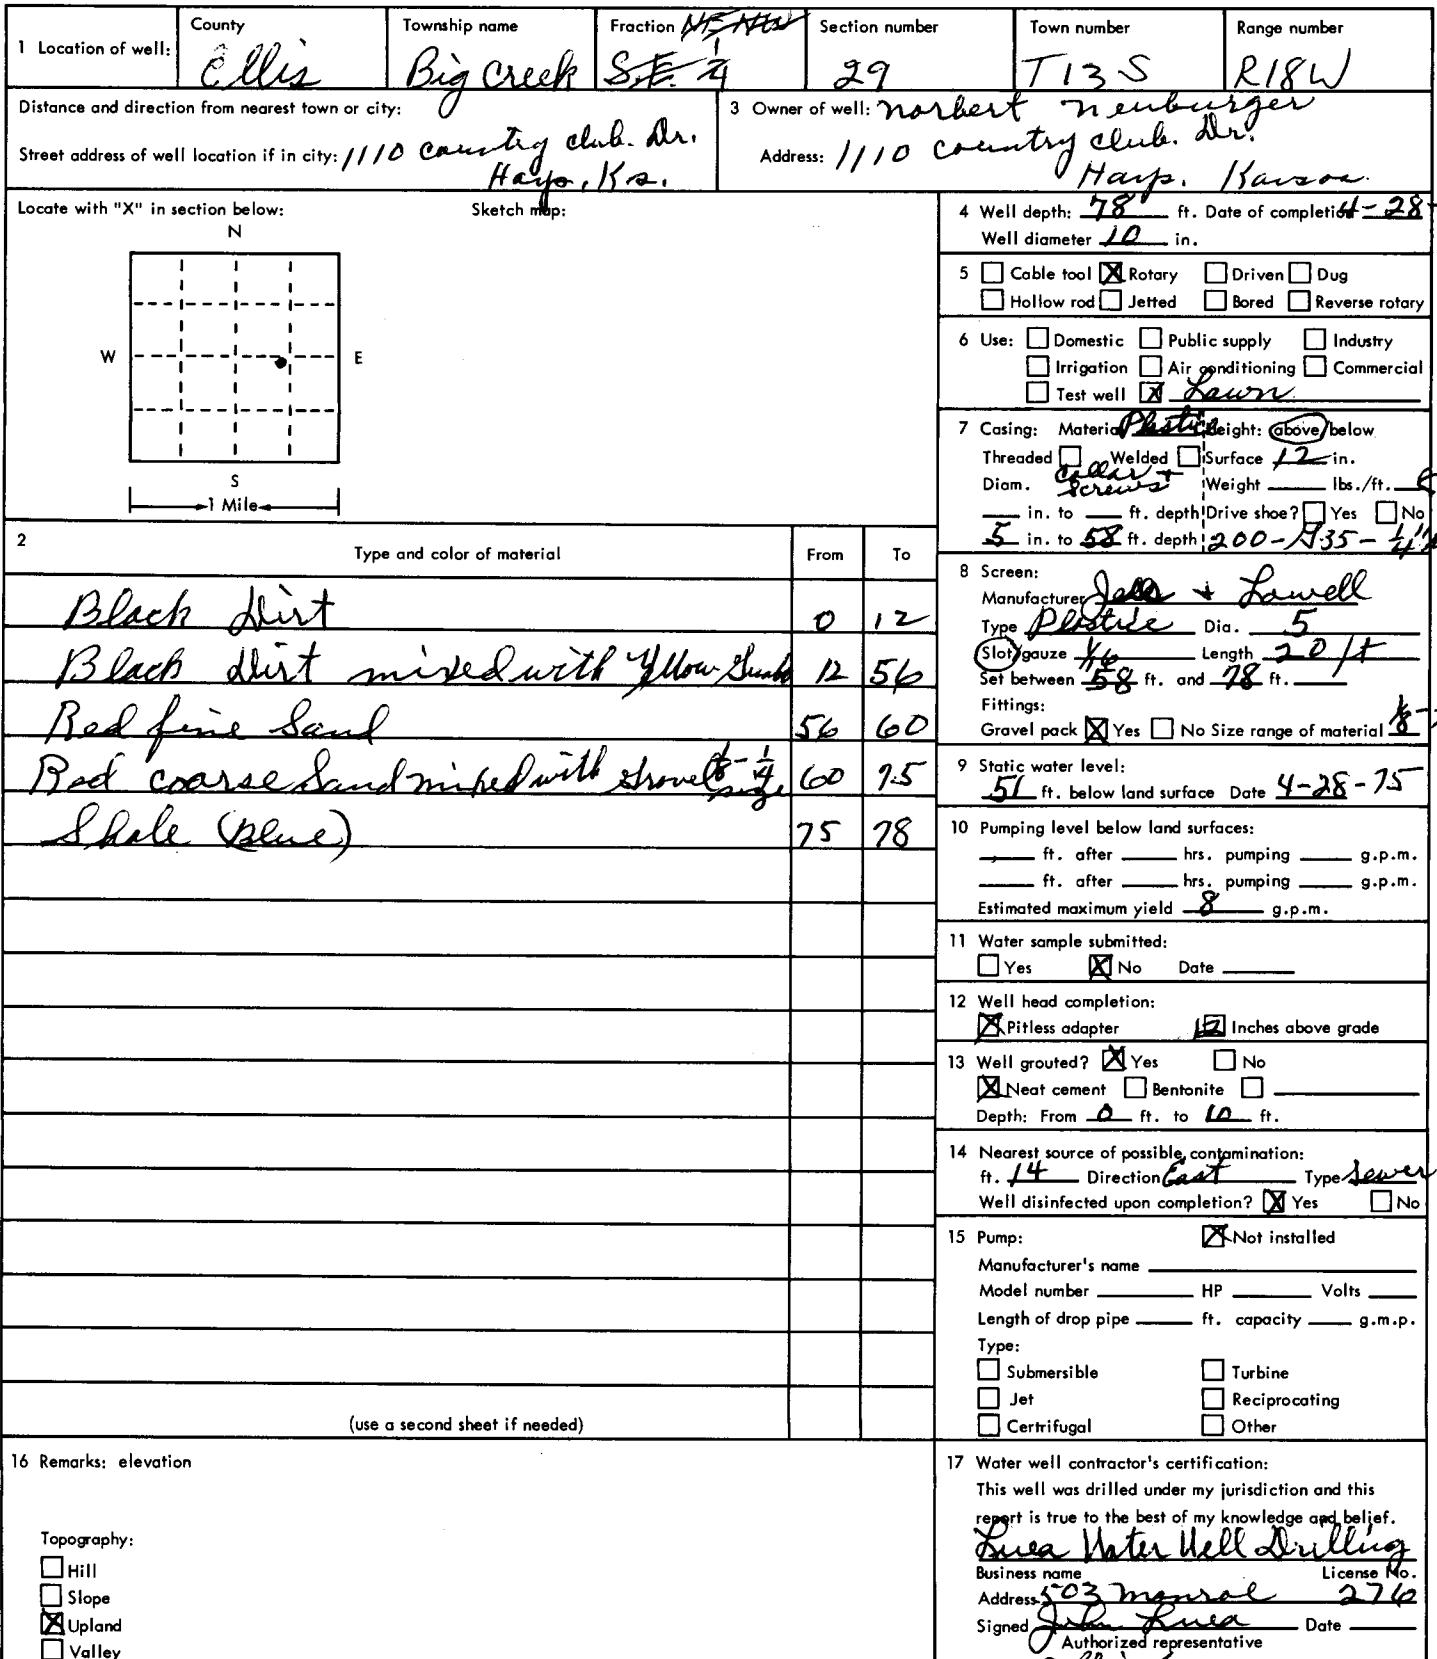 1 Location of well: County Ellis Township name Big Creek Fraction NE NW S.E. 1/4 Section number 29 Town number T13S Range number R18W
Distance and direction from nearest town or city:
Street address of well location if in city: 1110 country club. Dr.
Hays, Ks.
3 Owner of well: Norbert Neuburger
Address: 1110 country club. Dr.
Hays. Kansas
Locate with "X" in section below: Sketch map:
N
W E
S
1 Mile
2 Type and color of material From To
Black Dirt 0 12
Black Dirt mixed with Yellow 12 56
Red fine Sand 56 60
Red coarse Sand mixed with Gravel 1/8-1/4 size 60 75
Shale (Blue) 75 78
(use a second sheet if needed)
4 Well depth: 78 ft. Date of completion 4-28-
Well diameter 10 in.
5 Cable tool X Rotary Driven Dug
Hollow rod Jetted Bored Reverse rotary
6 Use: Domestic Public supply Industry
Irrigation Air conditioning Commercial
Test well X Lawn
7 Casing: Material Plastic Height: above/below
Threaded Welded Surface 12 in.
Diam. Collar + Screws Weight lbs./ft.
in. to ft. depth Drive shoe? Yes No
5 in. to 58 ft. depth 200-
8 Screen:
Manufacturer + Lowell
Type Plastic Dia. 5
Slot/gauze 1/16 Length 20 ft
Set between 58 ft. and 78 ft.
Fittings:
Gravel pack X Yes No Size range of material 1/8-
9 Static water level:
51 ft. below land surface Date 4-28-75
10 Pumping level below land surfaces:
ft. after hrs. pumping g.p.m.
ft. after hrs. pumping g.p.m.
Estimated maximum yield 8 g.p.m.
11 Water sample submitted:
Yes X No Date
12 Well head completion:
X Pitless adapter 12 Inches above grade
13 Well grouted? X Yes No
X Neat cement Bentonite
Depth: From 0 ft. to 10 ft.
14 Nearest source of possible contamination:
ft. 14 Direction East Type Sewer
Well disinfected upon completion? X Yes No
15 Pump: X Not installed
Manufacturer's name
Model number HP Volts
Length of drop pipe ft. capacity g.m.p.
Type:
Submersible Turbine
Jet Reciprocating
Certrifugal Other
16 Remarks: elevation
Topography:
Hill
Slope
X Upland
Valley
17 Water well contractor's certification:
This well was drilled under my jurisdiction and this
report is true to the best of my knowledge and belief.
Luea Water Well Drilling
Business name License No.
Address 503 Monroe 276
Signed John Luea Date
Authorized representative